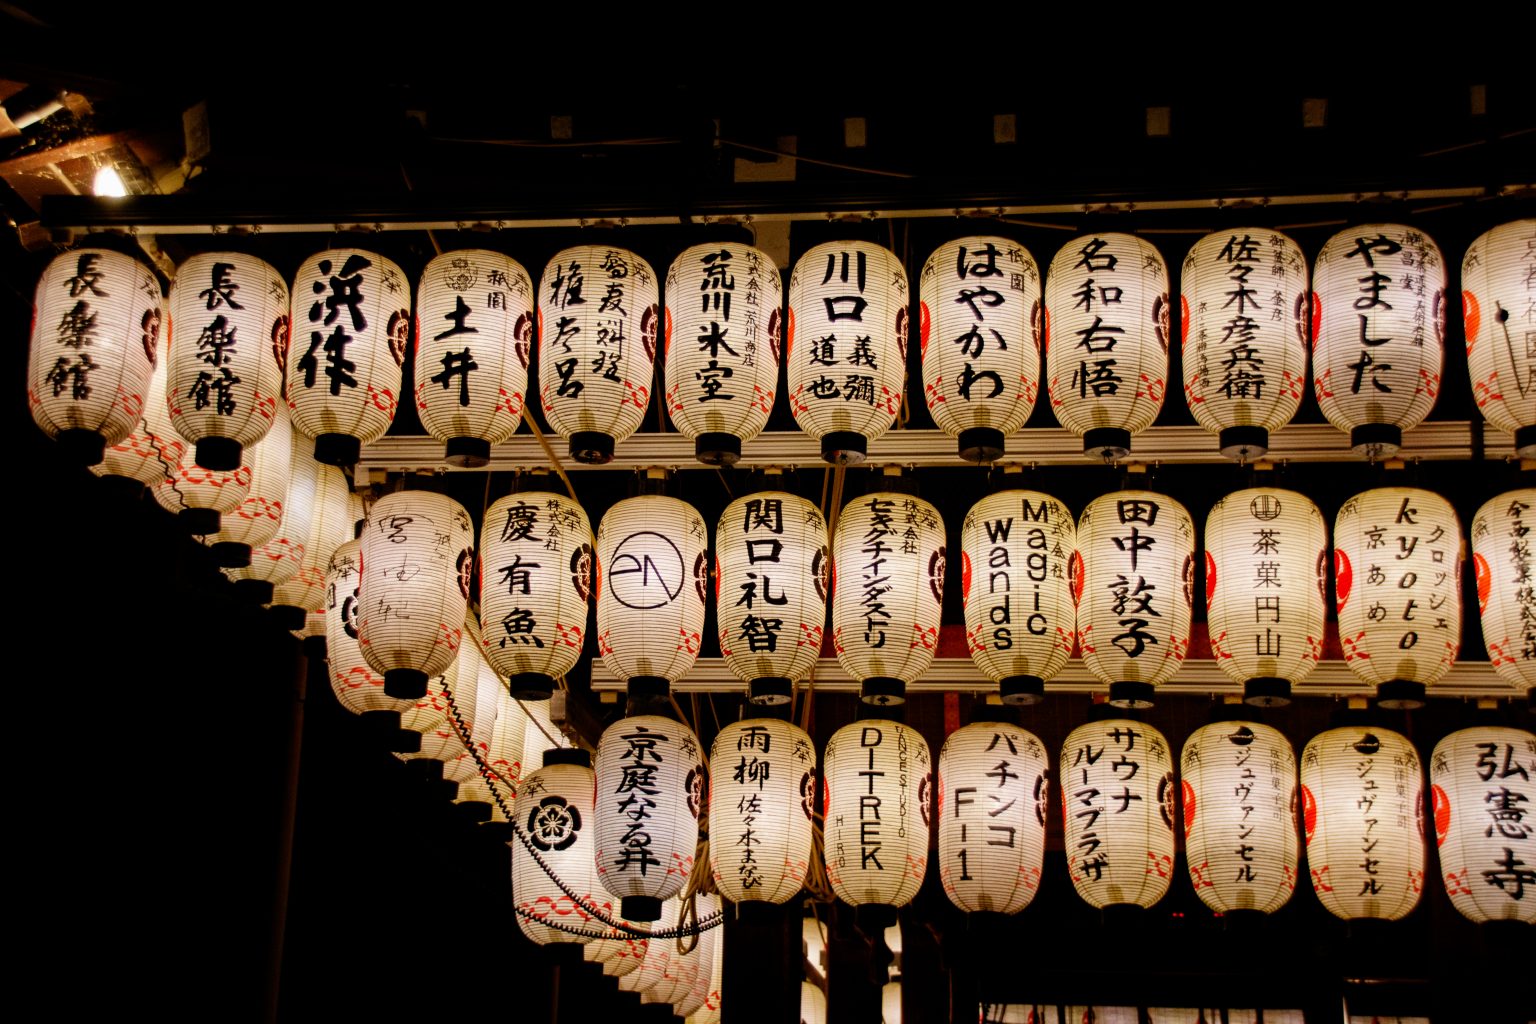 長樂館
長樂館
浜作
祇園
土井
荒川氷室
株式会社 荒川商店
川口
義彌
道也
祇園
はやかわ
名和右悟
佐々木彦兵衛
やました
株式会社
慶有魚
en
関口礼智
株式会社
セキグチインダストリー
Magic
wands
株式会社
田中敦子
茶菓円山
クロッシェ
kyoto
京あめ
京庭なる井
雨柳
佐々木まなび
DANCE STUDIO
DITREK
HIRO
パチンコ
F-1
サウナ
ルーマプラザ
ジュヴァンセル
ジュヴァンセル
弘憲寺